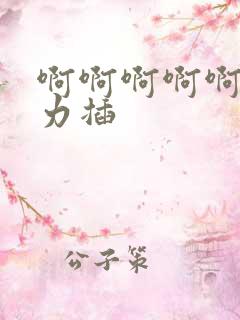 啊啊啊啊啊
力插
公子策